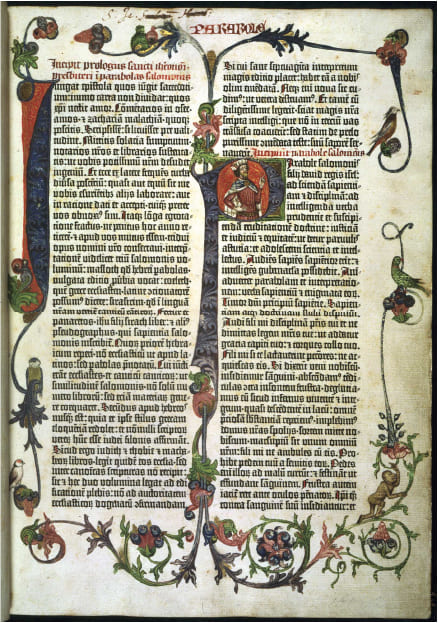 PARABOLE
Incipit prologus sancti iheronimi
presbiteri i parabolas salomonis
Iungat epistola quos iūgit sacerdoti-
um: immo carta non diuidat: quos
xp̄i nectit amor. Cōmentarios in osee-
amos- et zachariam malachiā- quoqz
poscitis. Scripsissem: si licuisset pre vali-
tudine. Mittitis solacia sumptuum-
notarios nr̄os et librarios sustenta-
tis: ut vobis potissimū nr̄m desudet
ingeniū. Et ecce ex latere frequēs turba
diuersa poscentiū: quasi aut equū sit me
vobis esurietibz alijs laborare: aut
in racione dati et accepti- cuiqz preter
vos obnoxi9 sim. Itaqz lōga egrota-
tione fractus- ne penitus hoc anno re-
ticerē- et apud vos mutus essem- tridui
opus nomini vr̄o consecraui- interp-
tationē videlicet triū salomonis vo-
luminū: masloth qd̄ hebrei pabolas-
vulgata editio pūbia vocat: coeleth-
quē grece ecclesiasten- latine cōcionatorē
possum9 dicere: sirassirim- qd̄ i linguā
nr̄am vertit canticū cāticoꝝ. Fertur et
panaretos- ih̄u filij sirach liber: et ali9
pseudographus- qui sapientia salo-
monis inscribit̄. Quoꝝ priorē hebra-
icum repperi- nō ecclesiasticū ut apud lati-
nos: sed pabolas pnotatū. Cui iūcti
erāt ecclesiastes- et canticū canticoꝝ: ut
similitudinē salomonis- nō solū nu-
mero librorū: sed etiā materiaꝝ gene-
re coequaret. Secūdus apud hebreos
nusqz est: quia et ipse stilus grecam
eloquētiā redolet: et nōnulli scriptoꝝ
veteꝝ hūc esse iudei filonis affirmāt.
Sicud ergo iudith et thobie et macha-
beoꝝ libros- legit quidē eos ecclia- sed
inter canonicas scripturas nō recipit:
sic et hec duo volumina legat ad edi-
ficationē plebis: nō ad auctoritatem
ecclesiasticoꝝ dogmatū ɔfirmandam.
Si cui sane septuaginta interpretum
magis editio placet: habet eā a nobis
olim emēdatā. Neqz eni noua sic cu-
dim9: ut vetera destruam9. Et tamē cū
diligentissime legerit- sciat magis nr̄a
scripta intelligi: que nō in terciū vas
trāsfusa coacuerīt: sed statim de prelo
purissime ɔmēdata teste: suū saporē ser-
uauerīt. Incipiunt parabole salomonis
Parabole salomonis
filij dauid regis isrl̄:
ad sciendā sapienti-
am et disciplinā: ad
intelligenda verba
prudentie et suscipi-
endā eruditionē doctrine: iusticiā
et iudiciū et equitatē: ut detur paruulis
astucia: et adolescenti scientia et intel-
lectus. Audiēs sapiēs sapientior erit: et
intelligēs gubernacla possidebit. Ani-
aduertet parabolam et interpretatio-
nem: verba sapientiū et enigmata eoꝝ.
Timor dn̄i principiū sapientie. Sapien-
tiam atqz doctrinam stulti despiciūt.
Audi fili mi disciplinā pr̄is tui et ne
dimittas legem mr̄is tue: ut addatur
gracia capiti tuo: et torques collo tuo.
Fili mi si te lactauerīt pctōres: ne ac-
quiescas eis. Si dixerīt veni nobiscū-
insidiemur sāguini- abscōdam9 tēdi-
culas cōtra insontem frustra- deglutia-
mus eū sicud infernus viuentē et inte-
grum- quasi descēdentē in lacū: omnē
p̄ciosā substātiā repiem9- implebim9
domus nr̄as spolijs- sortem mitte no-
biscum- marsupiū sit vnum omniū
nr̄m: fili mi ne ambules cū eis. Pro-
hibe pedem tuū a semitis eoꝝ. Pedes
eni illoꝝ ad malū currūt: et festināt ut
effundant sanguinem. Frustra autem
iacit̄ rete ante oculos pēnatoꝝ. Ip̄i qz
contra sanguinē suū insidiantur: et